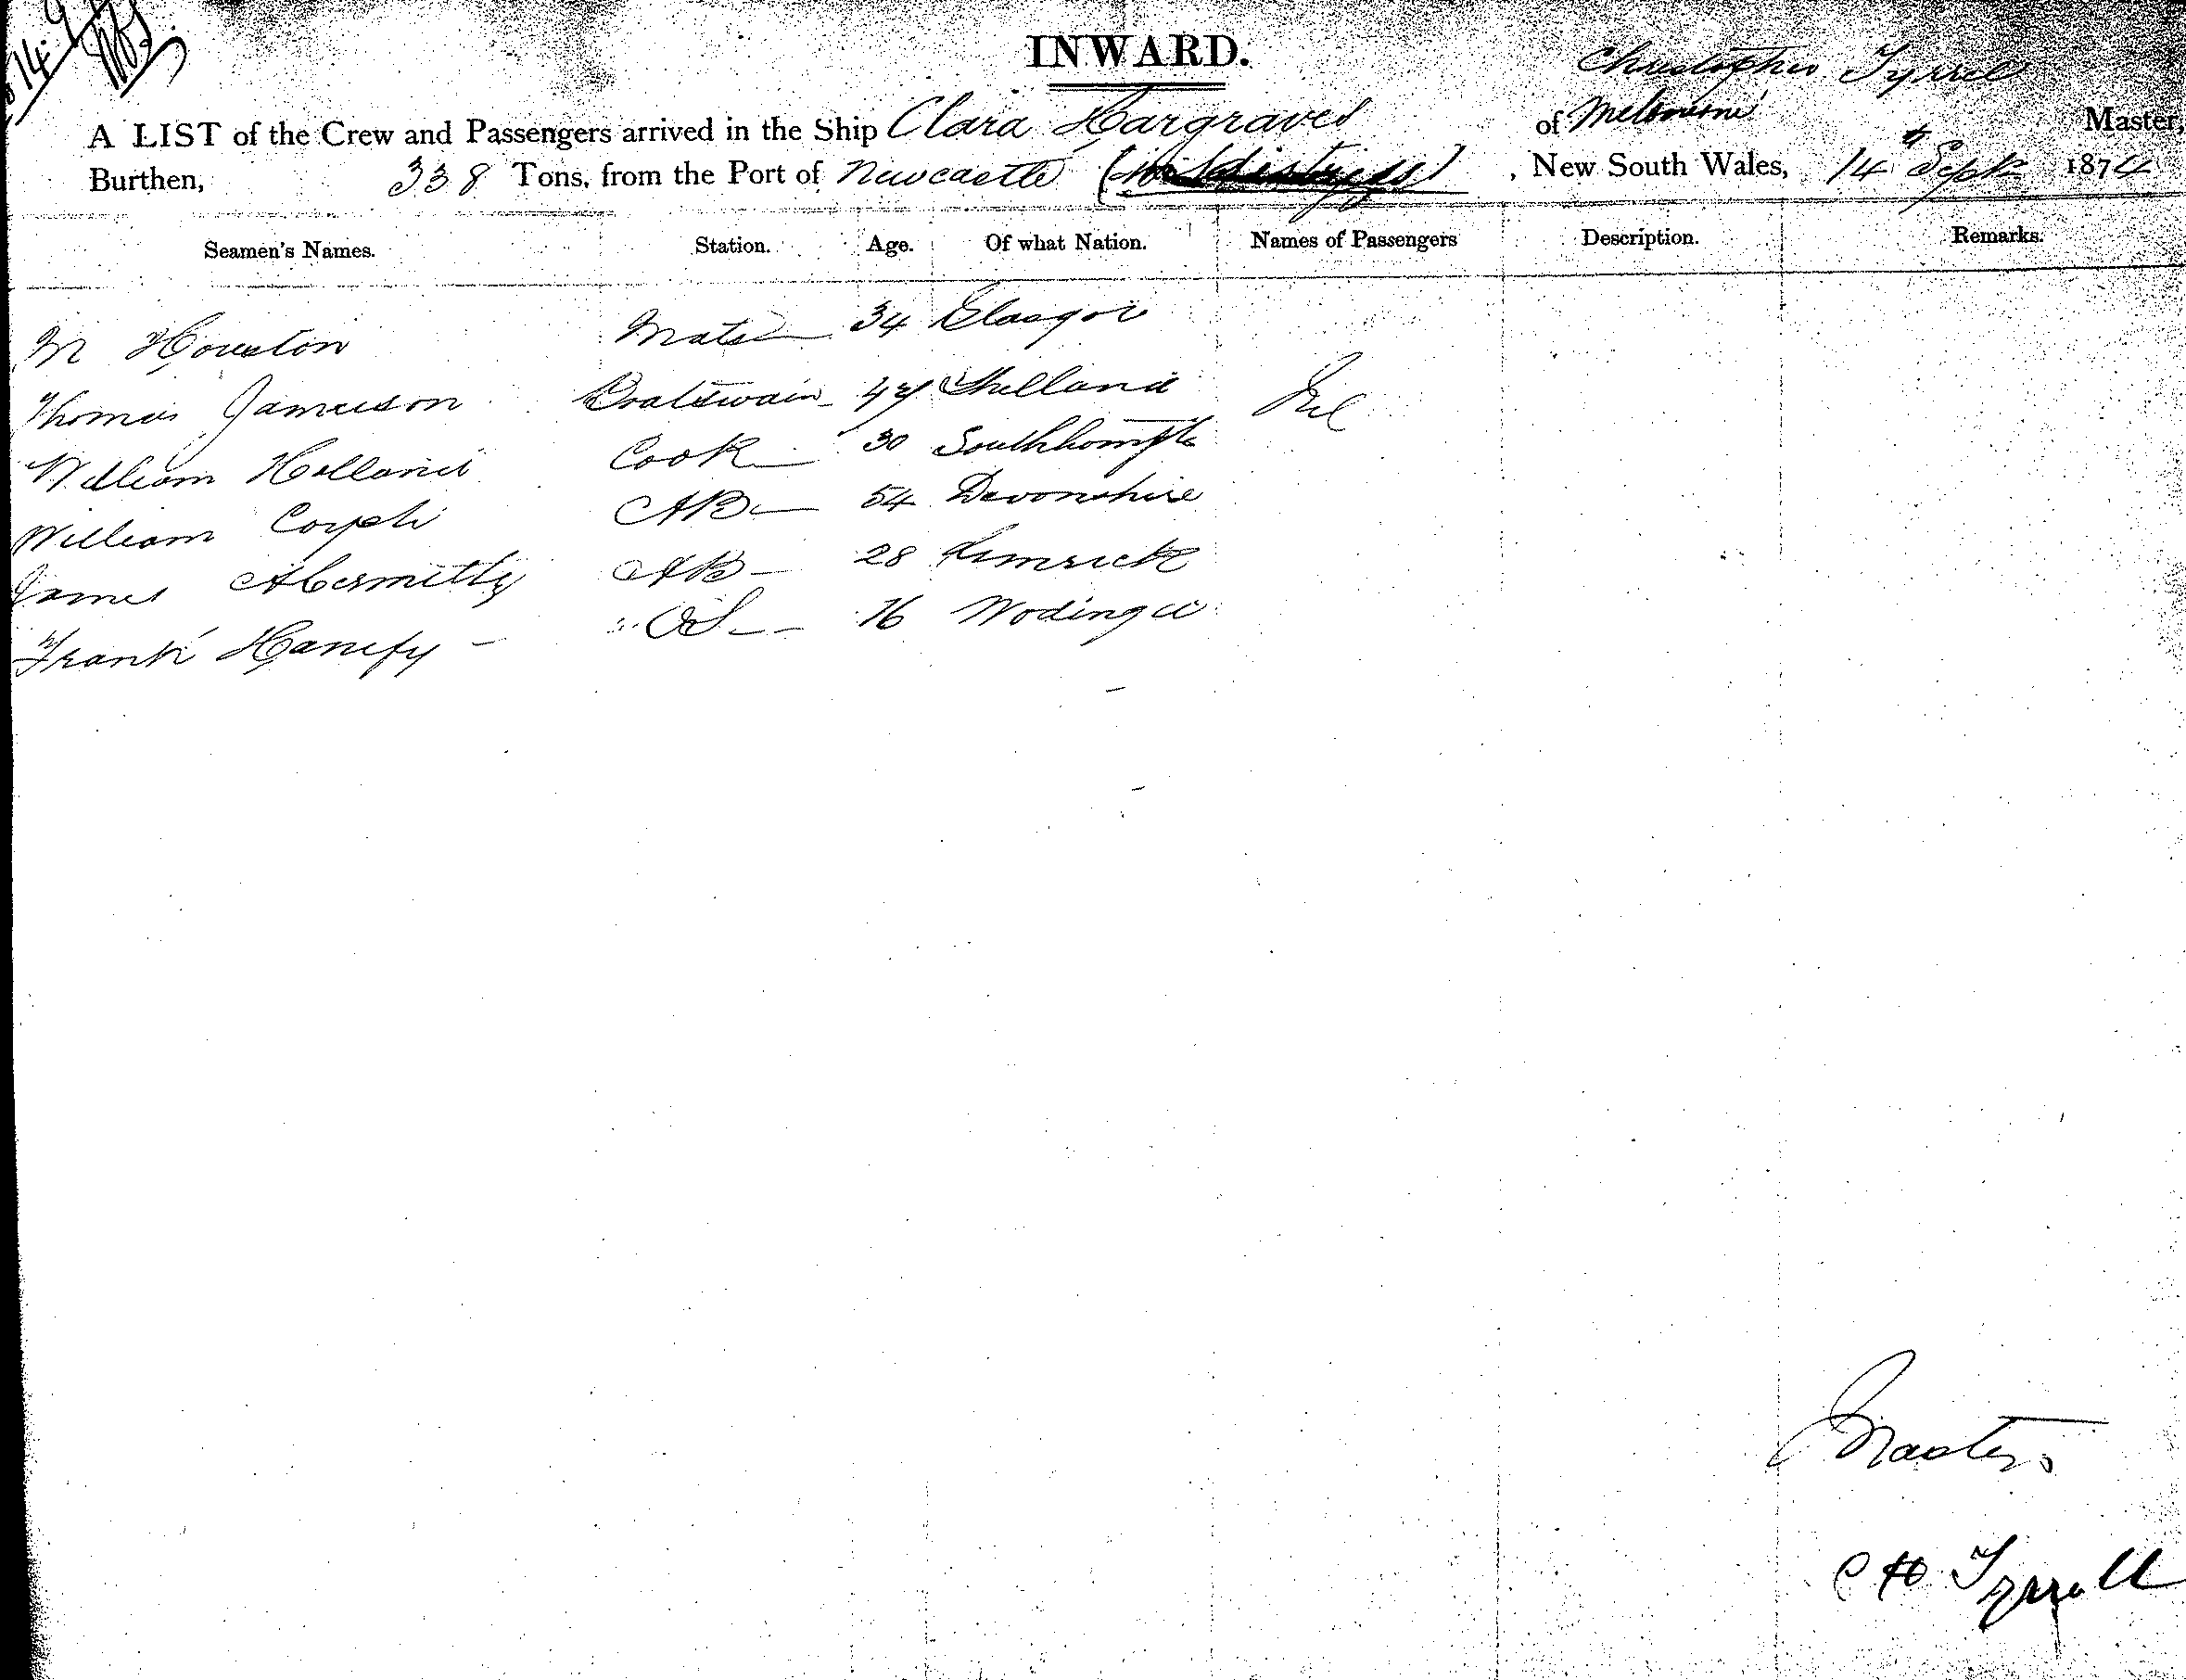 INWARD.
Christopher Tyrrell
A LIST of the Crew and Passengers arrived in the Ship Clara Hargraves of Melbourne Master,
Burthen, 338 Tons, from the Port of Newcastle (in distress) , New South Wales, 14th Sept 1874
Seamen's Names. Station. Age. Of what Nation. Names of Passengers Description. Remarks.
M Houston Mate 34 Glasgow
Thomas Jameison Boatswain 47 Shetland Nil
William Holland Cook 30 Southhampt
William AB 54 Devonshire
James AB 28 Limrick
Frank Hanify OS 16 Wodinga
Master
C H Tyrrell